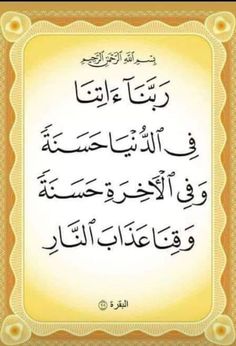 بِسْمِ اللَّهِ الرَّحْمَٰنِ الرَّحِيمِ
رَبَّنَآ ءَاتِنَا
فِى ٱلدُّنْيَا حَسَنَةً
وَفِى ٱلْأَخِرَةِ حَسَنَةً
وَقِنَا عَذَابَ ٱلنَّارِ
البقرة